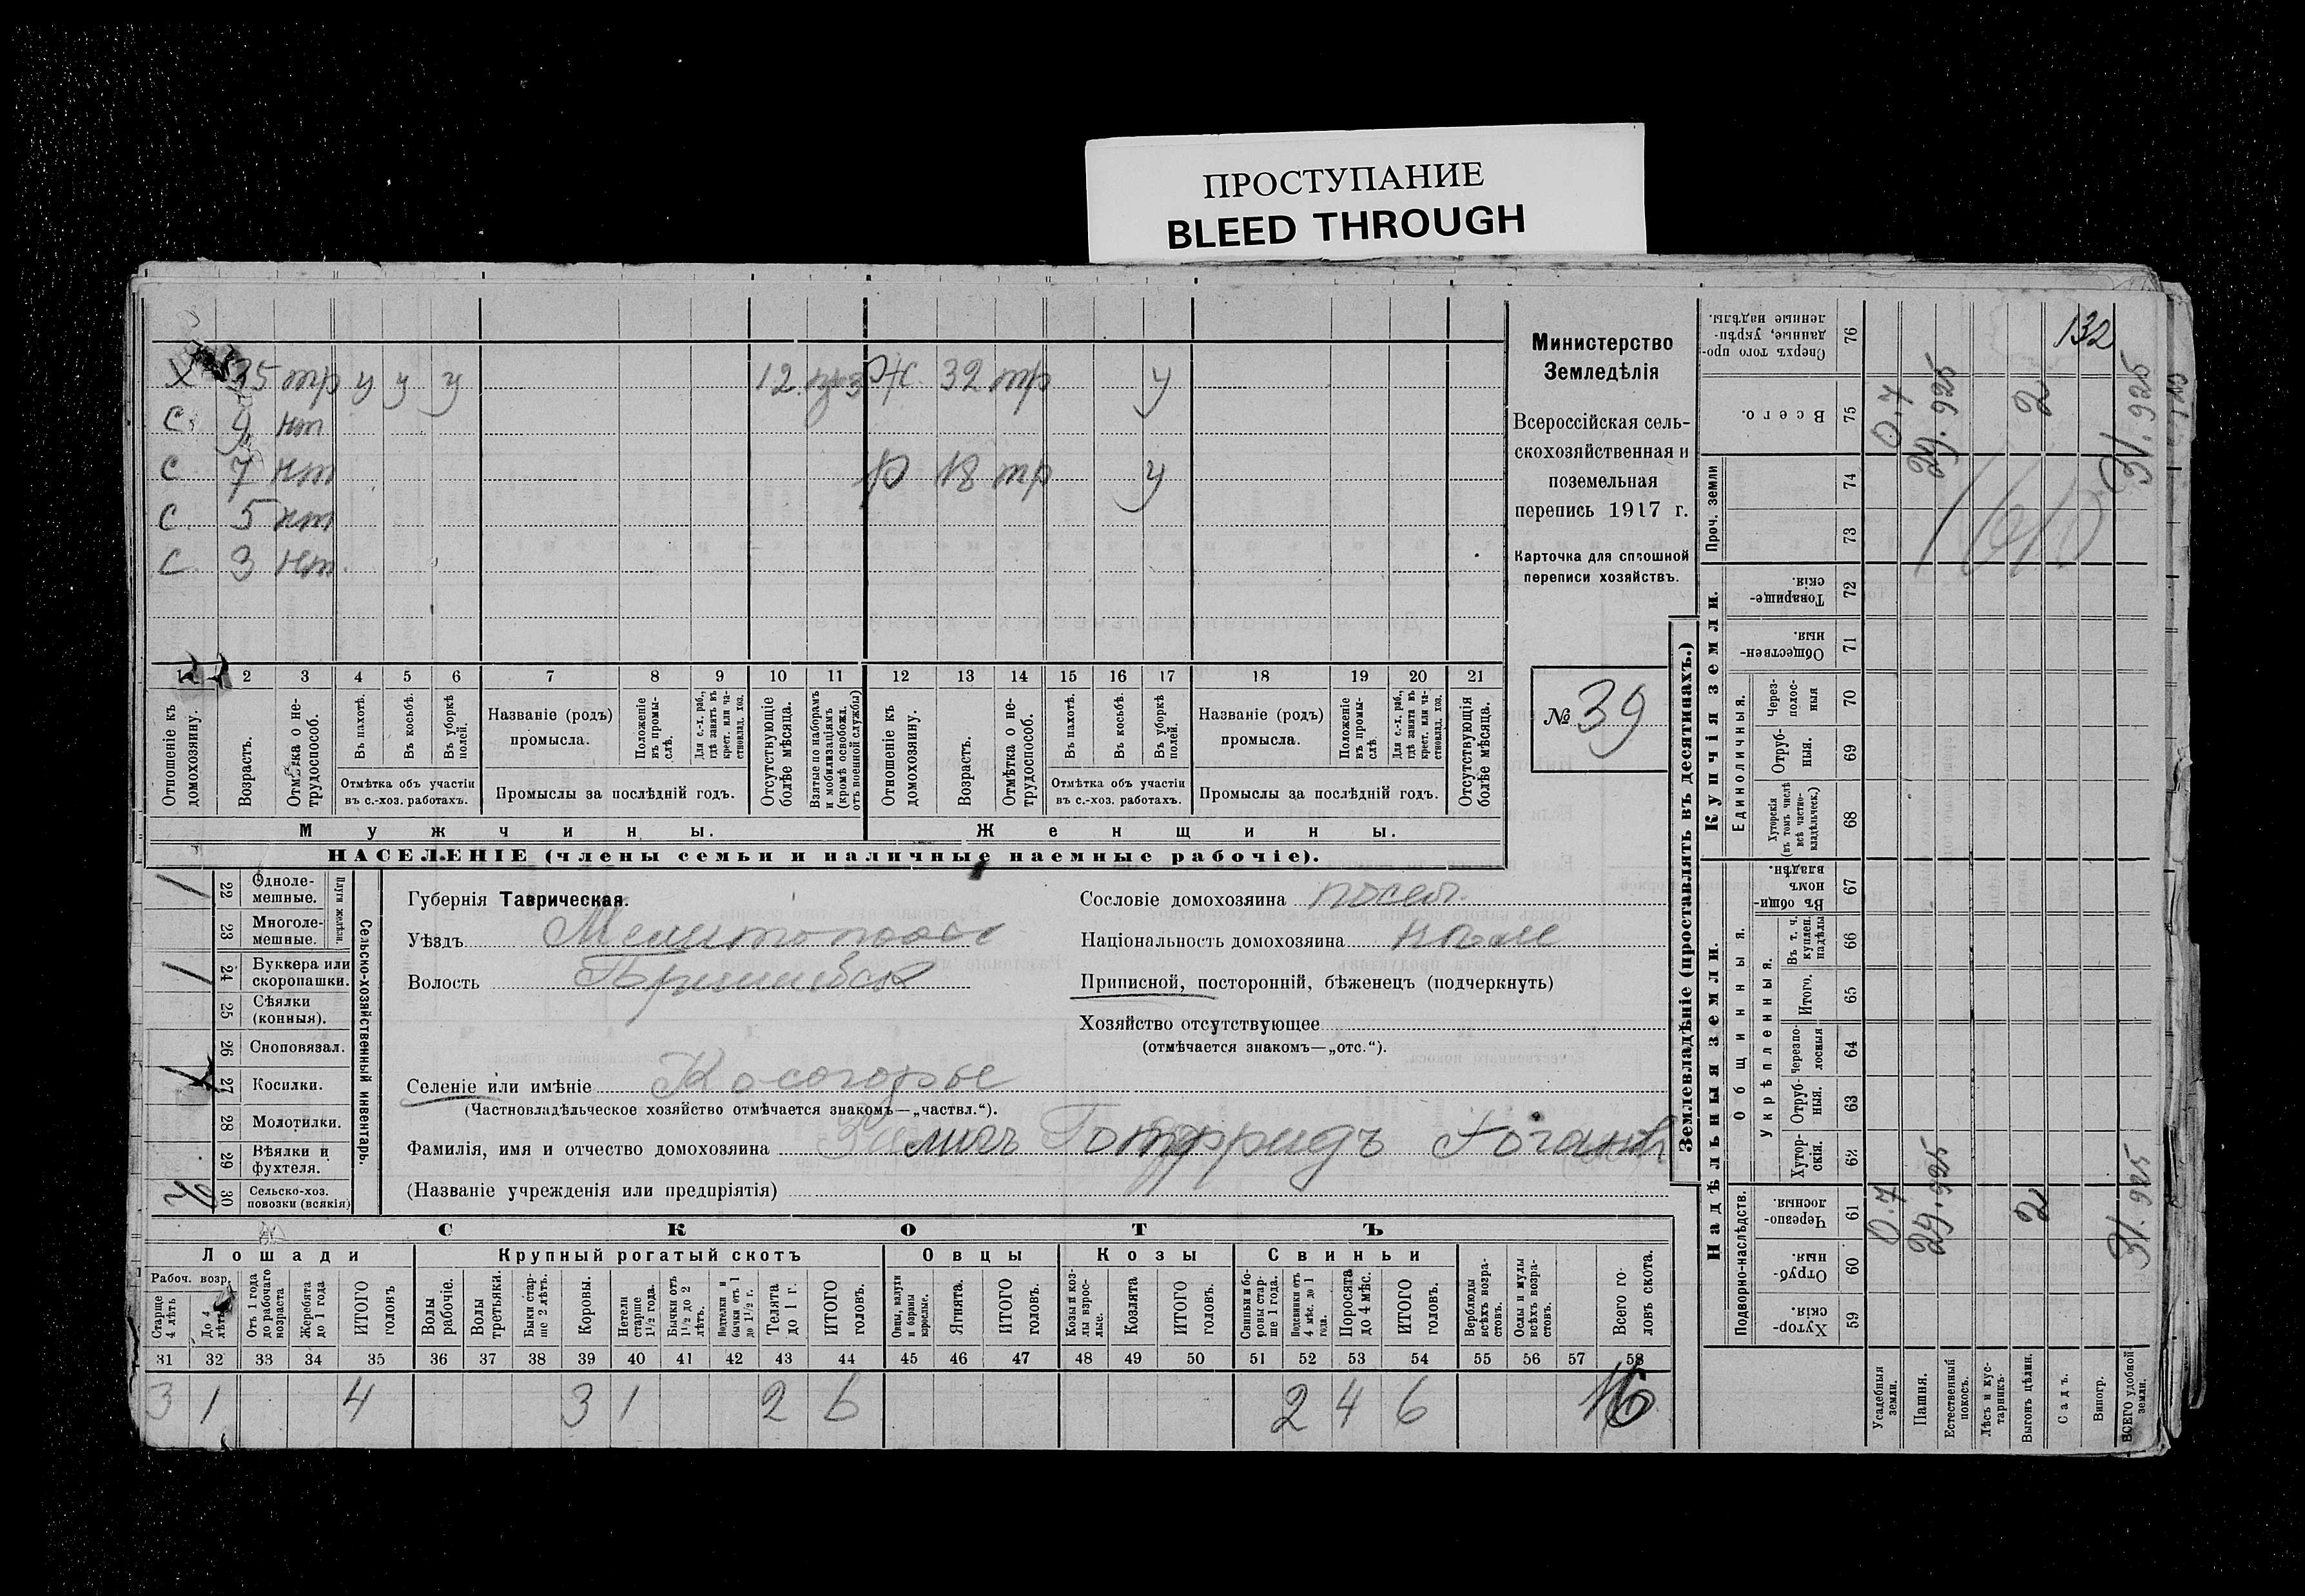 ПРОСТУПАНИЕ
BLEED THROUGH
Х 35 тр у у у 12 Ж 32 тр у
С. 9 нт
С 7 нт Р 18 тр у
С 5 нт
С. 3 нт
1 2 3 4 5 6 7 8 9 10 11 12 13 14 15 16 17 18 19 20 21
Отношеніе къ домохозяину.
Возрастъ.
Отмѣтка о не-трудоспособ.
Въ пахотѣ.
Въ косьбѣ.
Въ уборкѣ полей.
Отмѣтка объ участіи
въ с.-хоз. работахъ.
Названіе (родъ)
промысла.
Положеніе въ промы-слѣ.
Для с.-х. раб., гдѣ занятъ въ крест. или ча-стновлад. хоз.
Промыслы за послѣдній годъ.
Отсутствующіе болѣе мѣсяца.
Взятые по наборамъ и мобилизаціямъ (кромѣ освобожд. отъ военной службы)
Отношеніе къ домохозяину.
Возрастъ.
Отмѣтка о не-трудоспособ.
Въ пахотѣ.
Въ косьбѣ.
Въ уборкѣ полей.
Отмѣтка объ участіи
въ с.-хоз. работахъ.
Названіе (родъ)
промысла.
Положеніе въ промы-слѣ.
Для с.-х. раб., гдѣ занята въ крест. или ча-стновлад. хоз.
Промыслы за послѣдній годъ.
Отсутствующія болѣе мѣсяца.
Мужчины.
Женщины.
НАСЕЛЕНІЕ (члены семьи и наличные наемные рабочіе).
Министерство
Земледѣлія
Всероссійская сель-
скохозяйственная и
поземельная
перепись 1917 г.
Карточка для сплошной
переписи хозяйствъ.
№ 39
1 22 Одноле-мешные.
23 Многоле-мешные.
Плуги желѣзн.
1 24 Буккера или скоропашки.
25 Сѣялки (конныя).
26 Сноповязал.
1 27 Косилки.
28 Молотилки.
29 Вѣялки и фухтеля.
2 30 Сельско-хоз. повозки (всякія)
Сельско-хозяйственный инвентарь.
Губернія Таврическая.
Уѣздъ Мелитопольс
Волость Пришибск
Селеніе или имѣніе Косогорье
(Частновладѣльческое хозяйство отмѣчается знакомъ—„частвл.“).
Фамилія, имя и отчество домохозяина Готфридъ Іоган
(Названіе учрежденія или предпріятія)
Сословіе домохозяина посел.
Національность домохозяина
Приписной, посторонній, бѣженецъ (подчеркнуть)
Хозяйство отсутствующее
(отмѣчается знакомъ—„отс.“).
СКОТЪ
Лошади
Крупный рогатый скотъ
Овцы
Козы
Свиньи
Рабоч. возр.
Старше 4 лѣтъ
До 4 лѣтъ
Отъ 1 года до рабочаго возраста
Жеребята до 1 года
ИТОГО головъ
Волы рабочіе.
Волы третьяки.
Быки стар-ше 2 лѣтъ.
Коровы.
Нетели старше 1½ года.
Бычки отъ 1½ до 2 лѣтъ.
Подтелки и бычки отъ 1 до 1½ г.
Телята до 1 г.
ИТОГО головъ.
Овцы, валухи и бараны взрослые.
Ягнята.
ИТОГО головъ.
Козы и коз-лы взрос-лые.
Козлята
ИТОГО головъ.
Свиньи и бо-ровы стар-ше 1 года.
Подсвинки отъ 4 мѣс. до 1 года.
Поросята до 4 мѣс.
ИТОГО головъ.
Верблюды всѣхъ возра-стовъ.
Ослы и мулы всѣхъ возра-стовъ.
Всего го-ловъ скота.
31 32 33 34 35 36 37 38 39 40 41 42 43 44 45 46 47 48 49 50 51 52 53 54 55 56 57 58
3 1 4 3 1 2 6 2 4 6 16
Землевладѣніе (проставлять въ десятинахъ.)
Надѣльныя земли.
Купчія земли.
Проч. земли
Подворно-наслѣдств.
Общинныя.
Укрѣпленныя.
Единоличныя.
Хутор-скія. 59
Отруб-ныя. 60
Черезпо-лосныя. 61
Хутор-скія. 62
Отруб-ныя. 63
черезпо-лосныя 64
Итого. 65
Въ т. ч. куплен. надѣлы 66
Въ общин-номъ владѣн. 67
Хуторскія (въ томъ числѣ всѣ частно-владѣльческ.) 68
Отруб-ныя. 69
Через-полос-ныя 70
Обществен-ныя. 71
Товарище-скія. 72
73
74
Всего. 75
Сверхъ того про-данные, укрѣп-ленные надѣлы. 76
Усадебныя земли. 0.7 0.7
Пашня. 29.925 29.925
Естественный покосъ.
Лѣсъ и кус-тарникъ.
Выгонъ цѣлин. 2 2
Садъ.
Виногр.
ВСЕГО удобной земли.
132